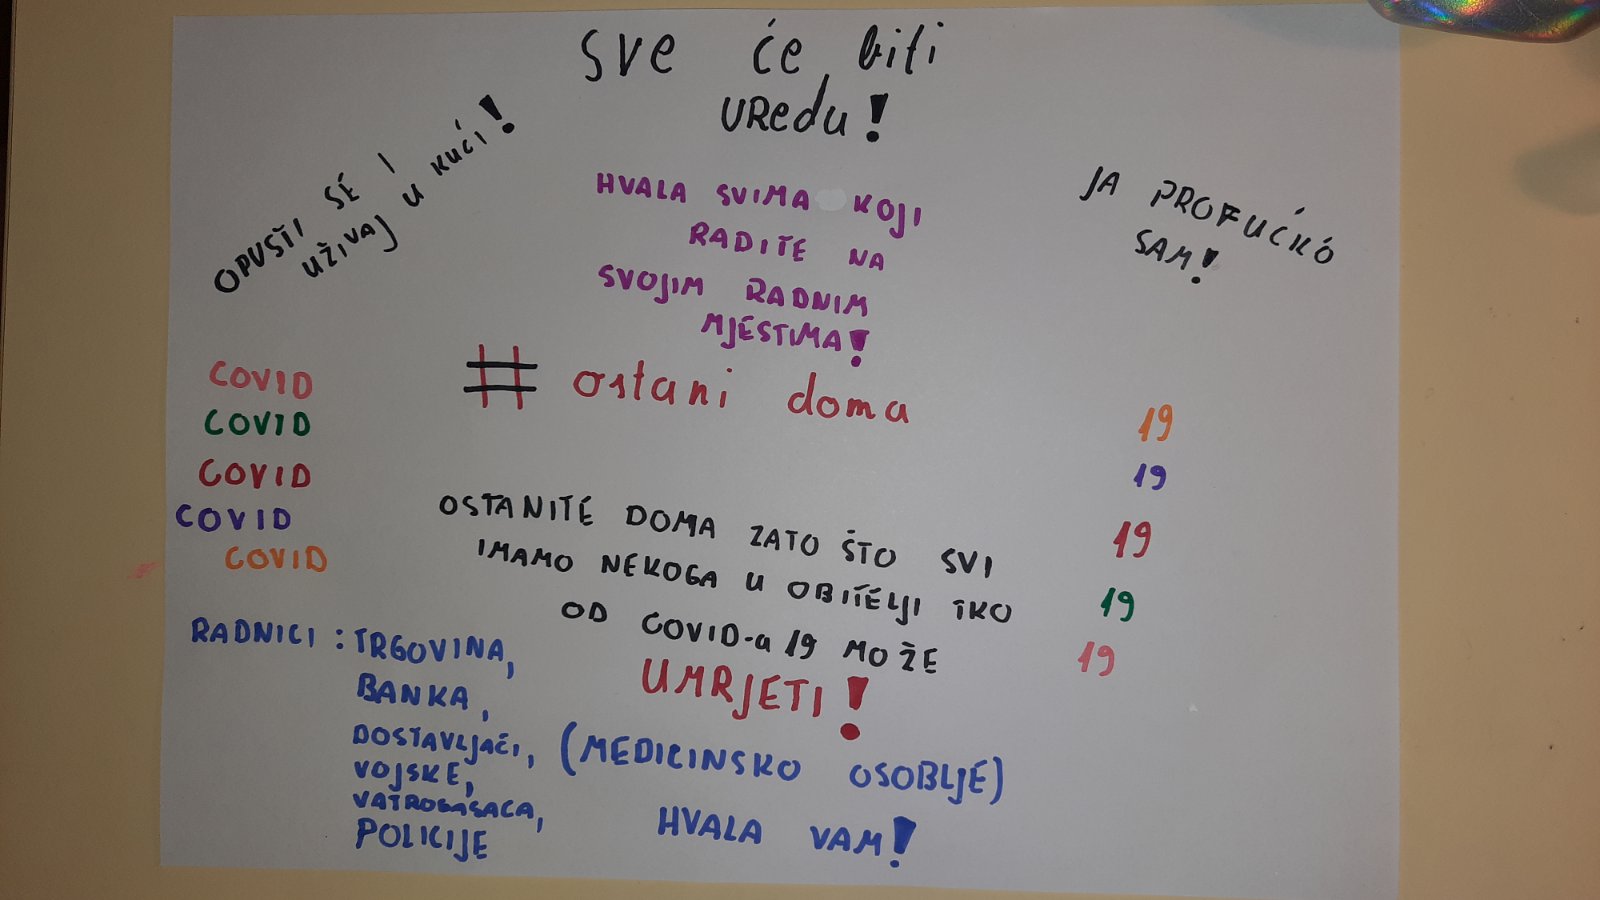 sve će biti
uredu!
OPUSTI SE I
UŽIVAJ U KUĆI!
HVALA SVIMA KOJI
RADITE NA
SVOJIM RADNIM
MJESTIMA!
JA PROFUĆKÓ
SAM!
# ostani doma
COVID 19
COVID 19
COVID 19
COVID 19
COVID 19
OSTANITE DOMA ZATO ŠTO SVI
IMAMO NEKOGA U OBITELJI TKO
OD COVID-a 19 MOŽE
UMRJETI!
RADNICI: TRGOVINA,
BANKA,
DOSTAVLJAČI, (MEDICINSKO OSOBLJE)
VOJSKE,
VATROGASACA,
POLICIJE
HVALA VAM!